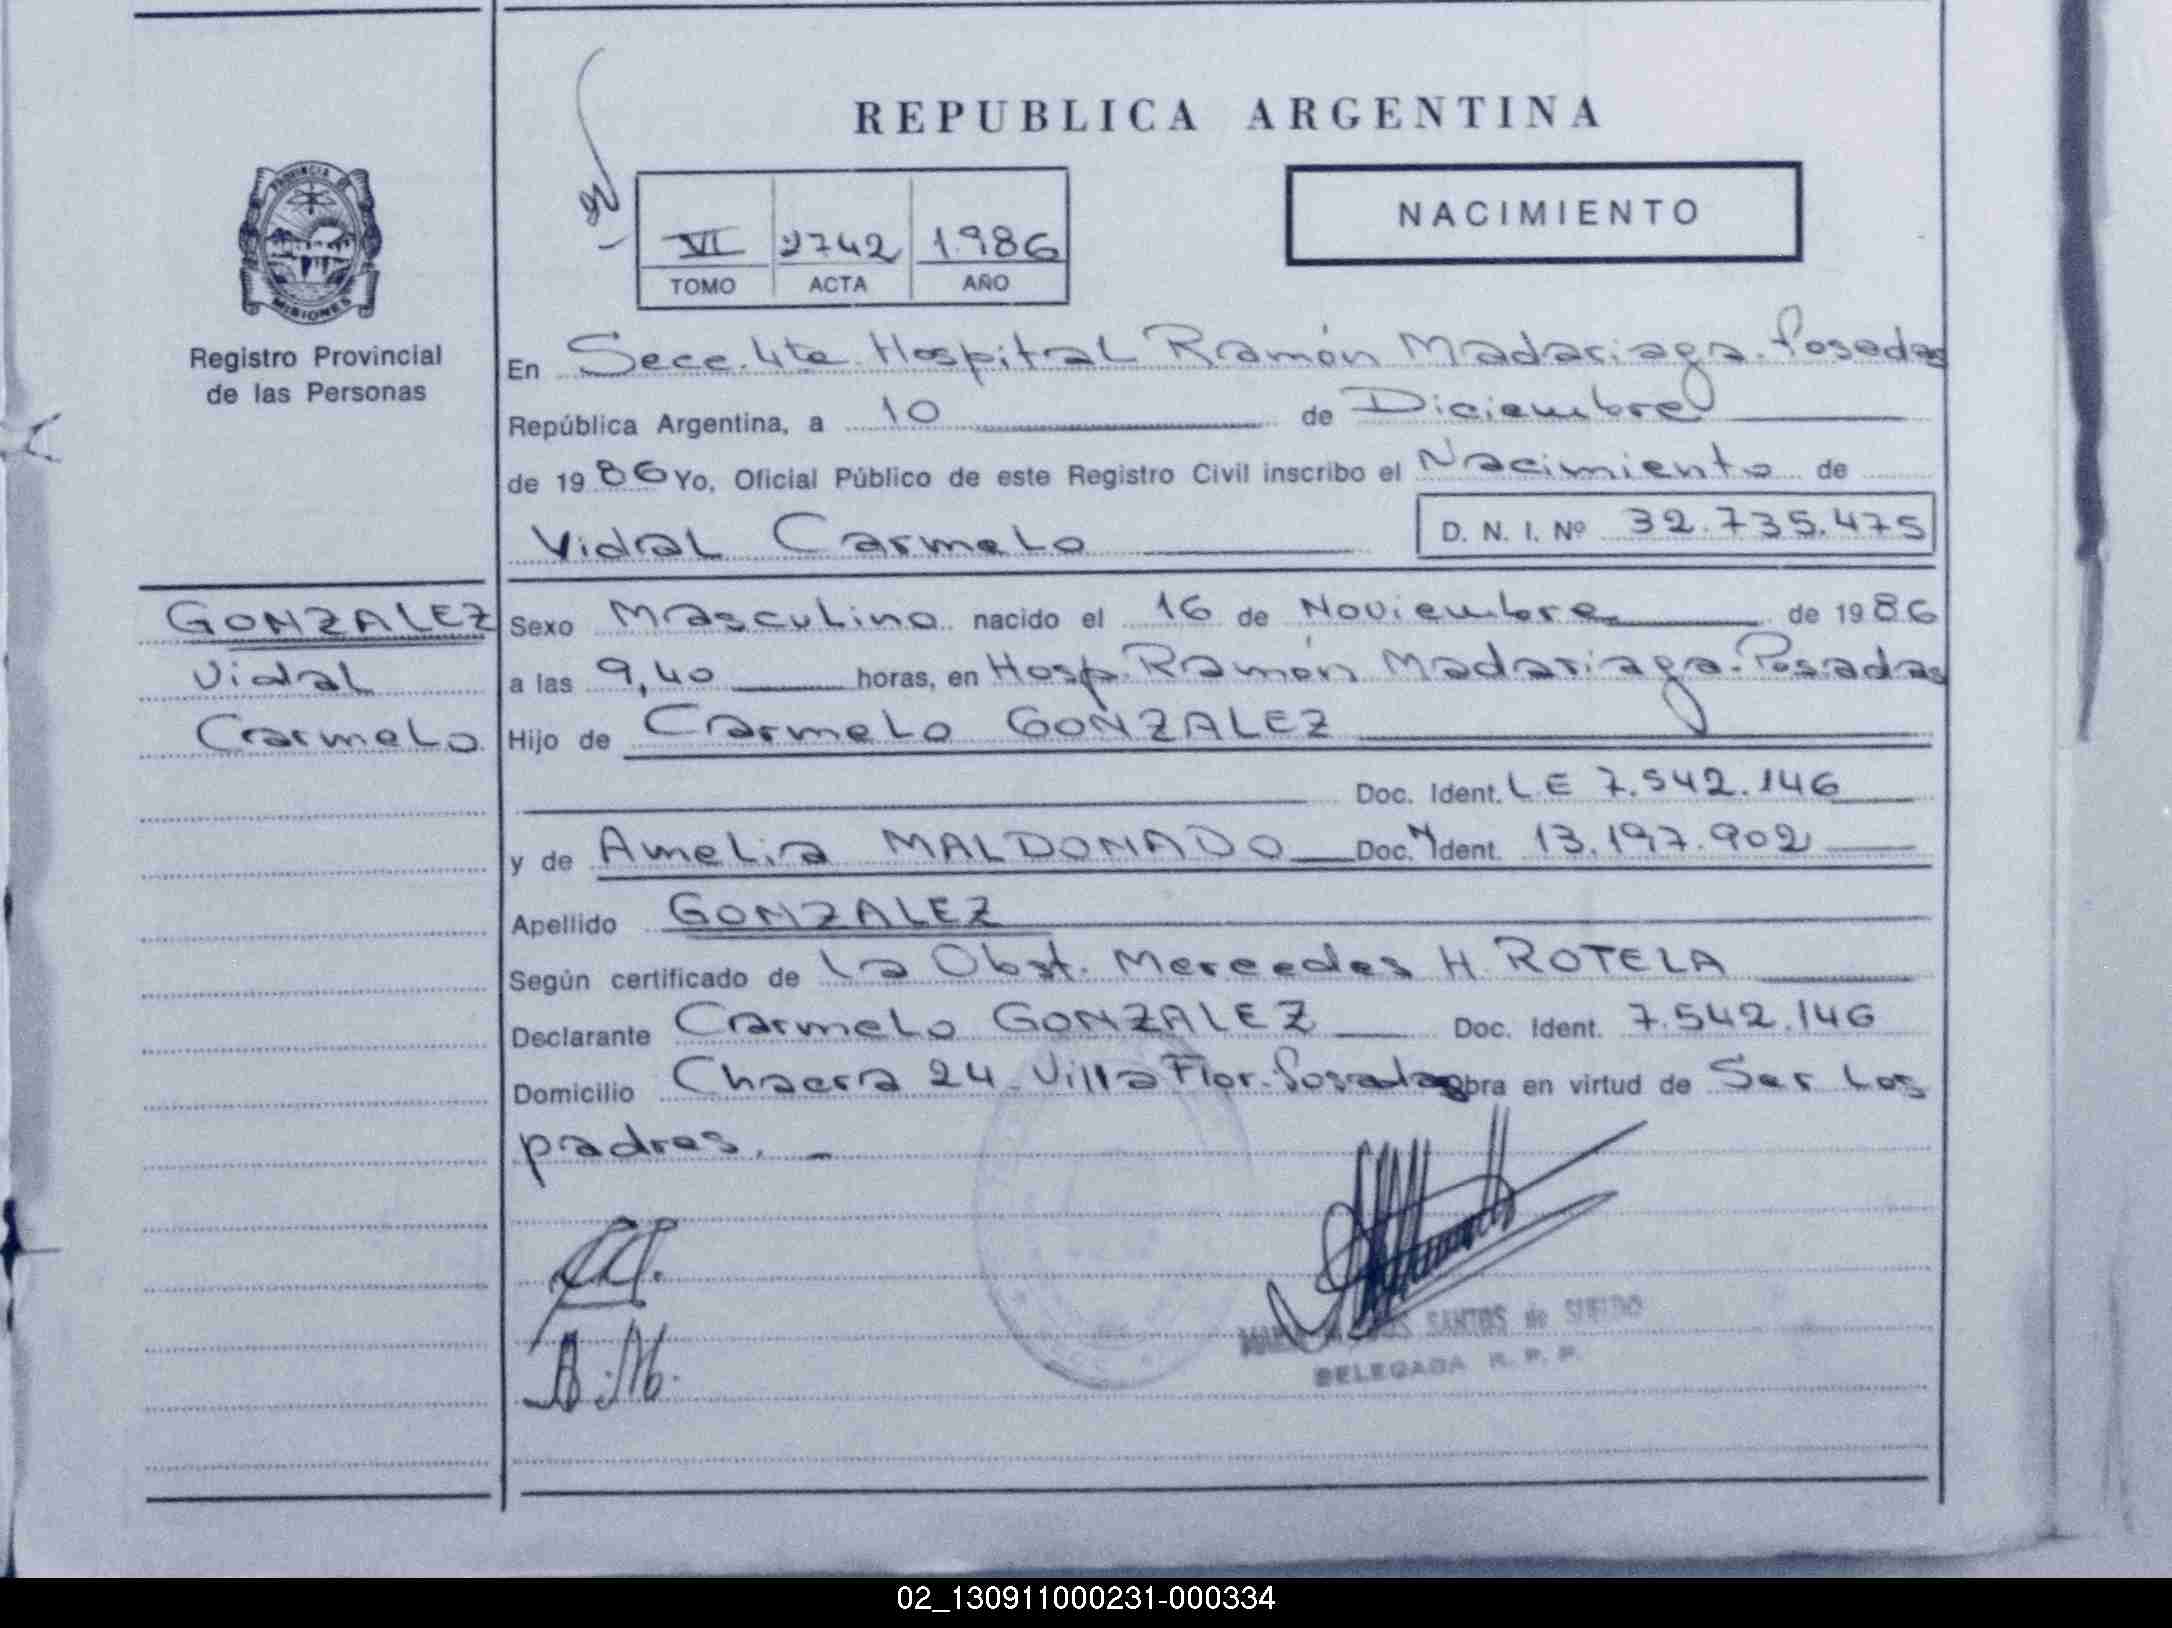 REPUBLICA ARGENTINA
NACIMIENTO
VI 2742 1.986
TOMO ACTA AÑO
PROVINCIA DE
MISIONES
Registro Provincial
de las Personas
En Secc. 4ta. Hospital Ramón Madariaga. Posadas
República Argentina, a 10 de Diciembre
de 1986 Yo, Oficial Público de este Registro Civil inscribo el Nacimiento de
Vidal Carmelo D. N. I. Nº 32.735.475
GONZALEZ
Vidal
Carmelo
Sexo Masculino nacido el 16 de Noviembre de 1986
a las 9,40 horas, en Hosp. Ramón Madariaga. Posadas
Hijo de Carmelo GONZALEZ
Doc. Ident. L E 7.542.146
y de Amelia MALDONADO Doc. Ident. 13.197.902
Apellido GONZALEZ
Según certificado de La Obst. Mercedes H. ROTELA
Declarante Carmelo GONZALEZ Doc. Ident. 7.542.146
Domicilio Chacra 24. Villa Flor. Posadas obra en virtud de Ser Los
padres. -
A.M.
SANTOS de SUELDO
DELEGADA R. P. P.
02_130911000231-000334